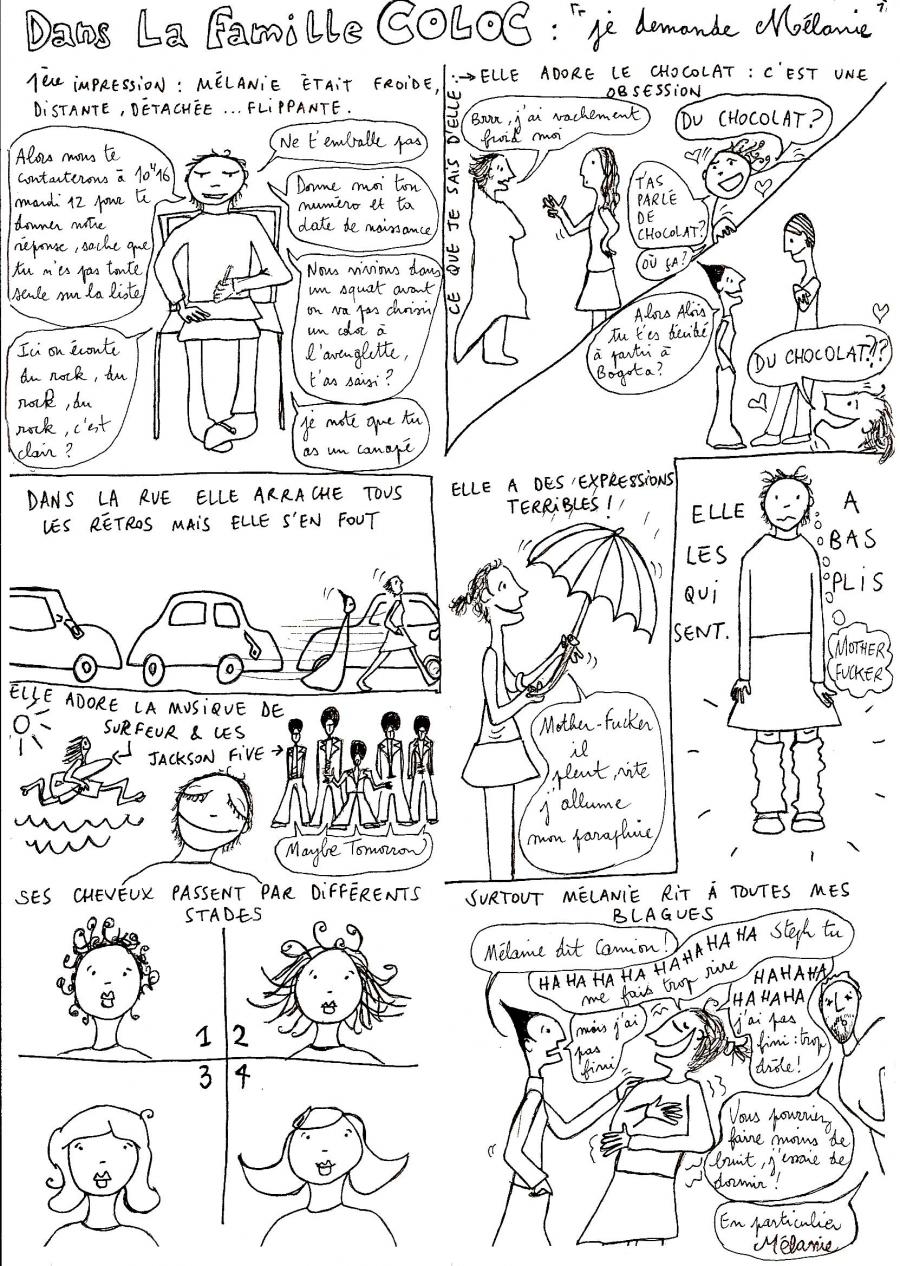 Dans La famille COLOC : "je demande Mélanie"
1ère IMPRESSION : MÉLANIE ÉTAIT FROIDE,
DISTANTE, DÉTACHÉE ... FLIPPANTE.
Alors nous te
contacterons à 10H16
mardi 12 pour te
donner notre
réponse, sache que
tu n'es pas toute
seule sur la liste
Ne t'emballe pas
Donne moi ton
numéro et ta
date de naissance
Nous vivions dans
un squat avant
on va pas choisir
un coloc à
l'aveuglette,
t'as saisi ?
Ici on écoute
du rock, du
rock, du
rock, c'est
clair ?
je note que tu
as un canapé
CE QUE JE SAIS D'ELLE :
→ ELLE ADORE LE CHOCOLAT : C'EST UNE
OBSESSION
Brrr, j'ai vachement
froid moi
DU CHOCOLAT ?
T'AS
PARLÉ
DE
CHOCOLAT ?
OÙ ÇA ?
Alors Aloïs
tu t'es décidé
à partir à
Bogota ?
DU CHOCOLAT ?!?
DANS LA RUE ELLE ARRACHE TOUS
LES RÉTROS MAIS ELLE S'EN FOUT
ELLE A DES EXPRESSIONS
TERRIBLES !
Mother-Fucker
il
pleut, vite
j'allume
mon parapluie
ELLE
LES
QUI
SENT.
A
BAS
PLIS
MOTHER
FUCKER
ELLE ADORE LA MUSIQUE DE
SURFEUR & LES
JACKSON FIVE →
Maybe Tomorrow
SES CHEVEUX PASSENT PAR DIFFÉRENTS
STADES
1 2
3 4
SURTOUT MÉLANIE RIT À TOUTES MES
BLAGUES
Mélanie dit Camion !
HA HA HA HA HA HA HA HA HA Steph tu
me fais trop rire
mais j'ai
pas
fini
HAHAHA
HAHAHA
j'ai pas
fini : trop
drôle !
Vous pourriez
faire moins de
bruit, j'essaie de
dormir !
En particulier
Mélanie